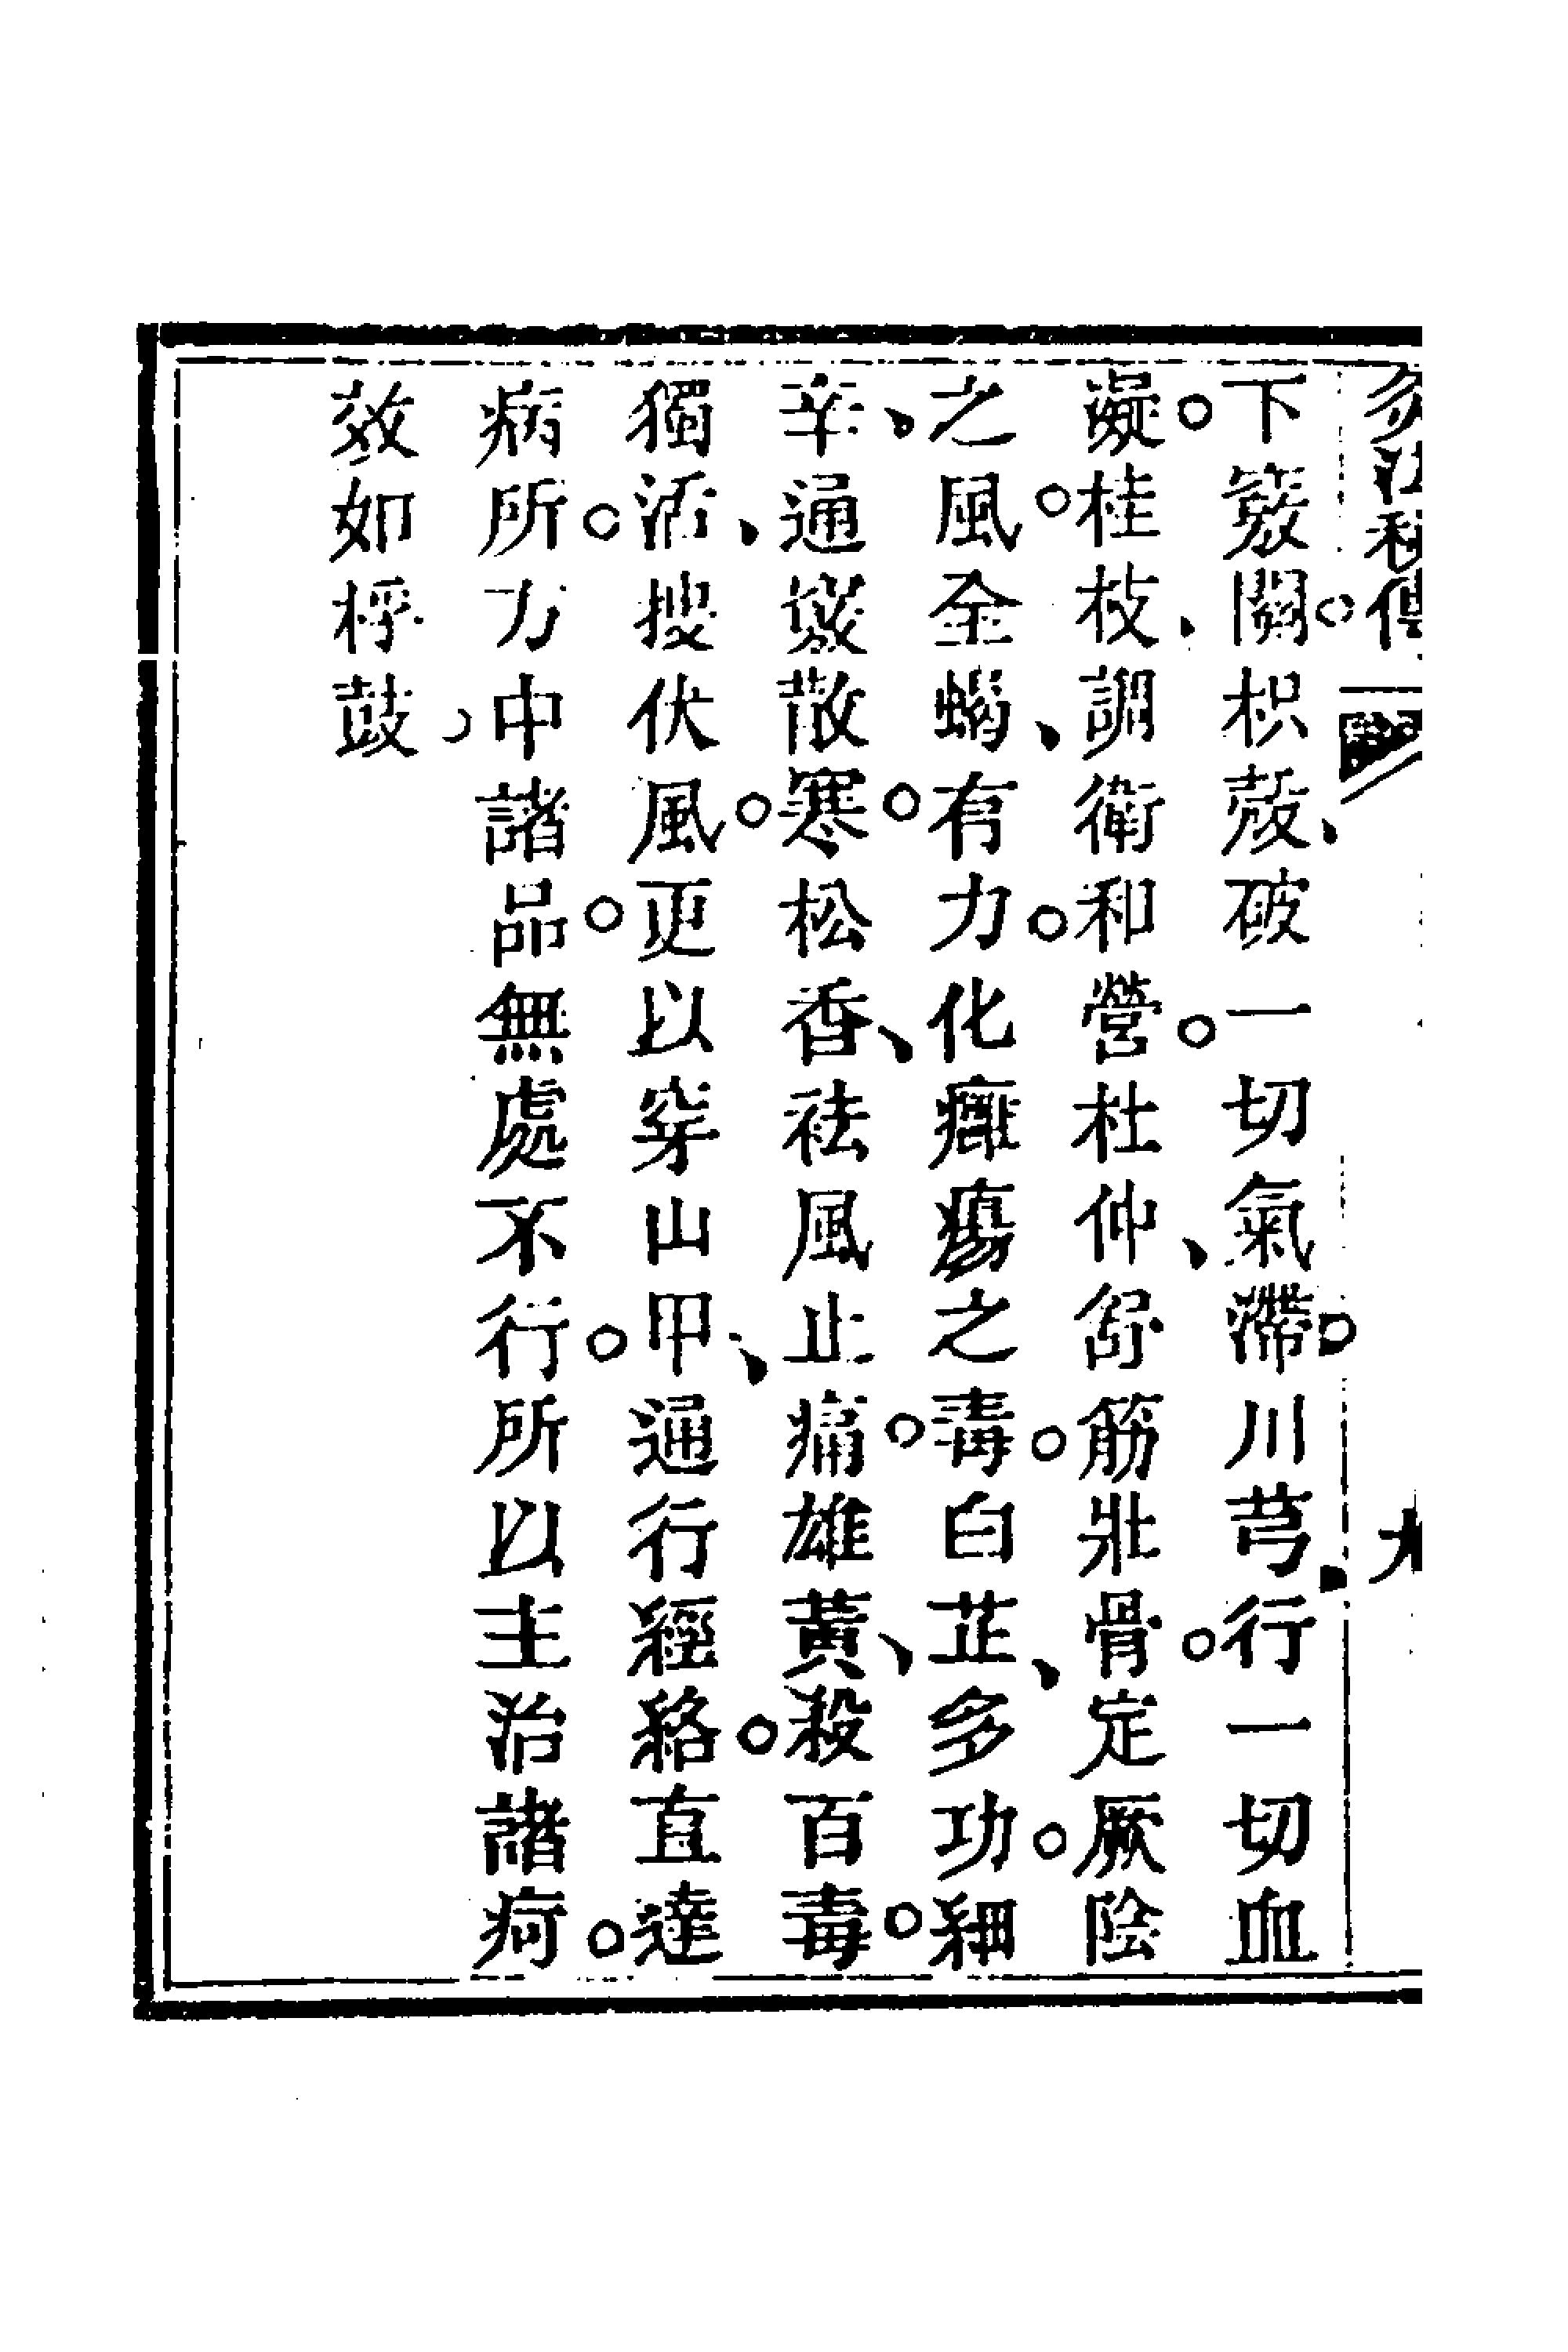 灸法秘傳
下竅關。枳殼、破一切氣滯。川芎、行一切血
凝。桂枝、調衛和營。杜仲、舒筋壯骨。定厥陰
之風。全蠍、有力。化癰瘍之毒。白芷、多功。細
辛、通竅散寒。松香、祛風止痛。雄黃、殺百毒。
獨活、搜伏風。更以穿山甲、通行經絡。直達
病所。方中諸品。無處不行。所以主治諸疴。
效如桴鼓。